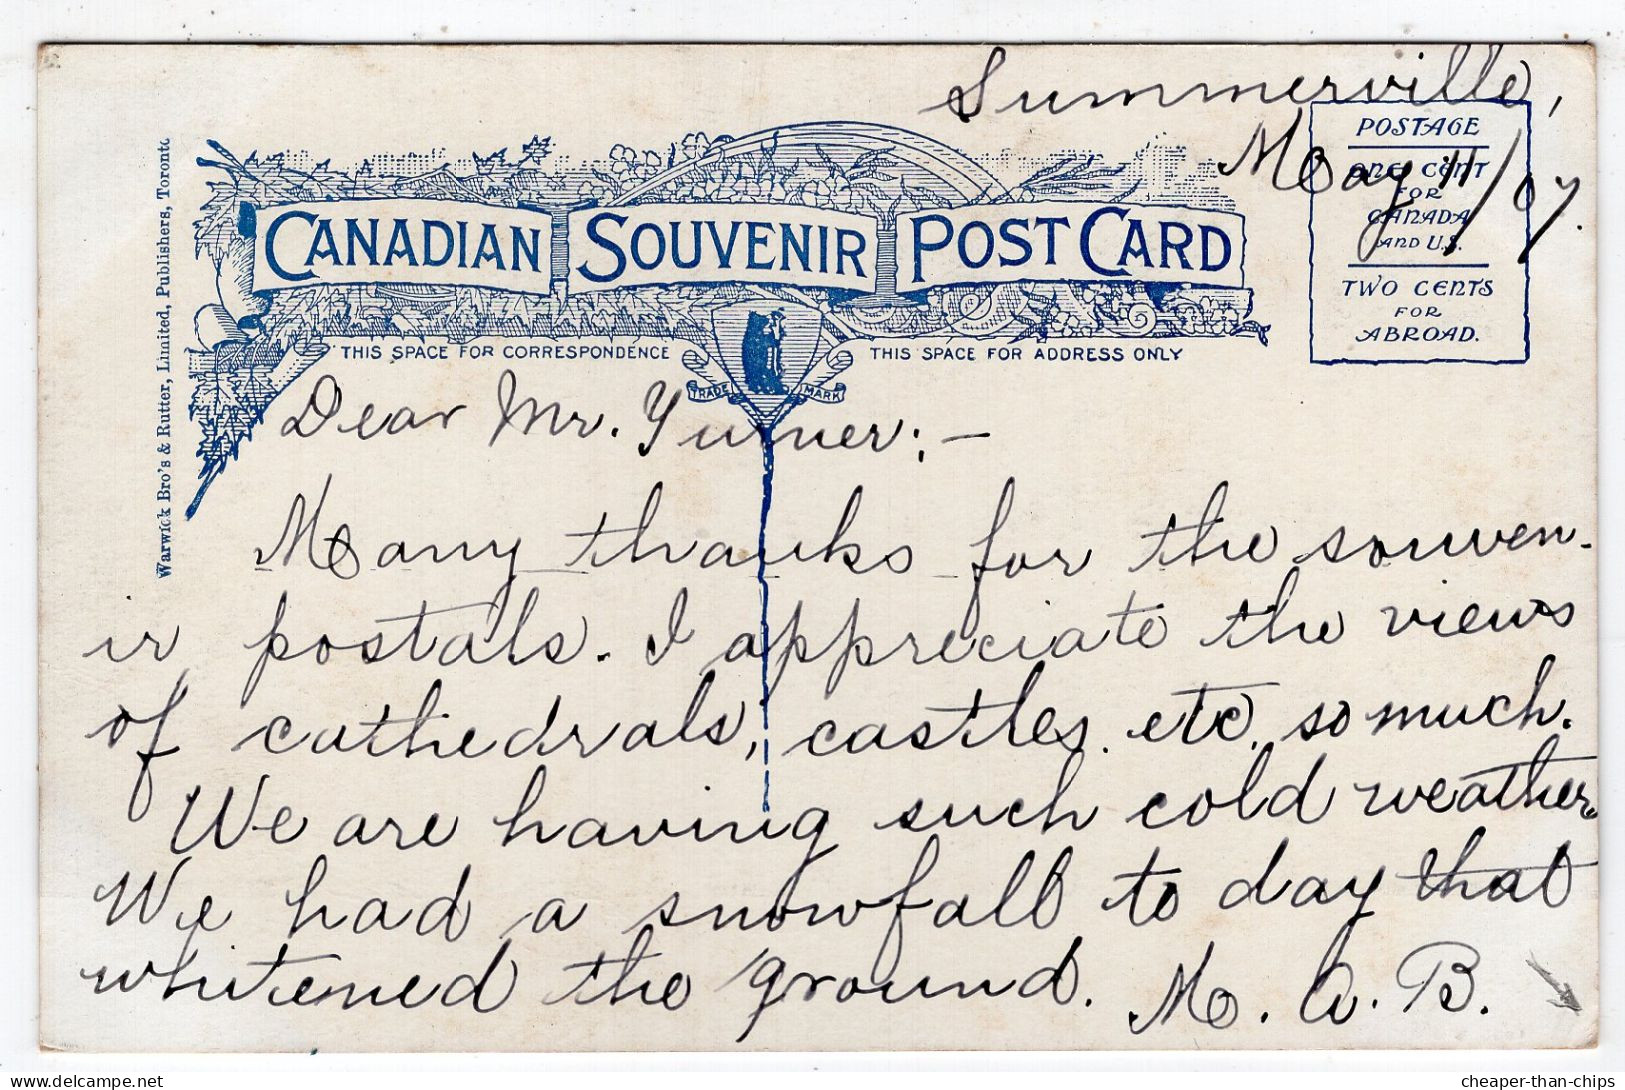 Summerville,
May 11/07.
POSTAGE
ONE CENT
FOR
CANADA
AND U.S.
TWO CENTS
FOR
ABROAD.
CANADIAN SOUVENIR POST CARD
THIS SPACE FOR CORRESPONDENCE
THIS SPACE FOR ADDRESS ONLY
TRADE MARK
Warwick Bro's & Rutter, Limited, Publishers, Toronto
Dear Mr. Turner:—
Many thanks for the souven-
ir postals. I appreciate the views
of cathedrals, castles. etc. so much.
We are having such cold weather.
We had a snowfall to day that
whitened the ground. M. A. B.
cheaper-than-chips
© delcampe.net
cheaper-than-chips